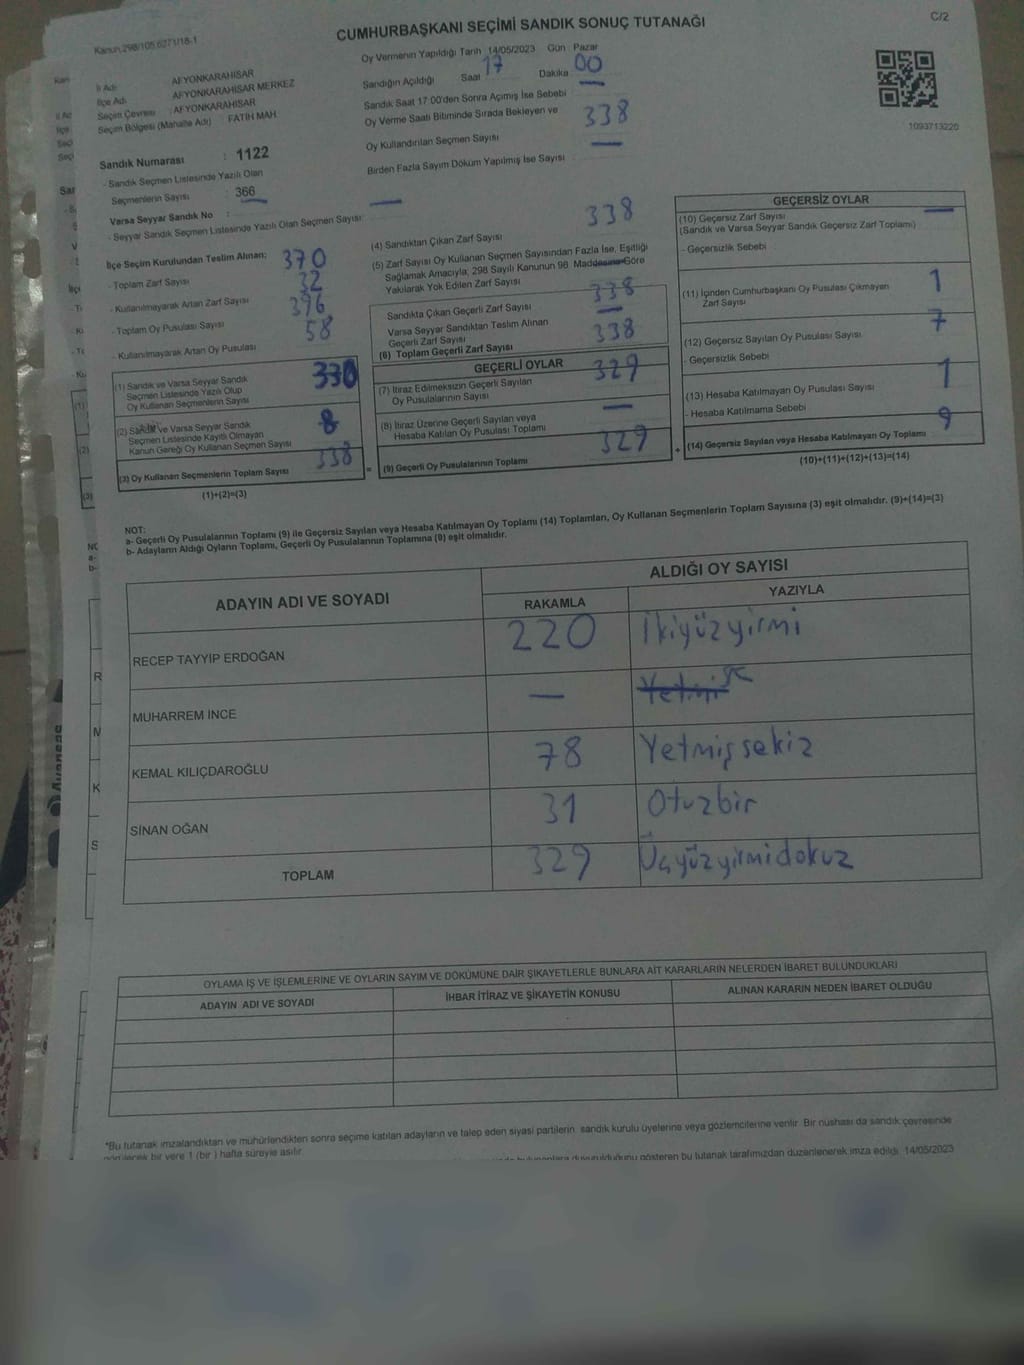 CUMHURBAŞKANI SEÇİMİ SANDIK SONUÇ TUTANAĞI
C/2
Kanun,298/105,6271/18-1
Oy Vermenin Yapıldığı Tarih 14/05/2023 Gün Pazar
İl Adı AFYONKARAHİSAR
İlçe Adı AFYONKARAHİSAR MERKEZ
Seçim Çevresi : AFYONKARAHİSAR
Seçim Bölgesi (Mahalle Adı) FATİH MAH.
Sandığın Açıldığı Saat 17 Dakika 00
Sandık Saat 17:00'den Sonra Açımış İse Sebebi —
Oy Verme Saati Bitiminde Sırada Bekleyen ve
Oy Kullandırılan Seçmen Sayısı 338
Birden Fazla Sayım Döküm Yapılmış İse Sayısı —
1093713220
Sandık Numarası : 1122
- Sandık Seçmen Listesinde Yazılı Olan
Seçmenlerin Sayısı : 366
Varsa Seyyar Sandık No :
- Seyyar Sandık Seçmen Listesinde Yazılı Olan Seçmen Sayısı: —
İlçe Seçim Kurulundan Teslim Alınan;
- Toplam Zarf Sayısı 370
- Kullanılmayarak Artan Zarf Sayısı 32
- Toplam Oy Pusulası Sayısı 396
- Kullanılmayarak Artan Oy Pusulası 58
(1) Sandık ve Varsa Seyyar Sandık
Seçmen Listesinde Yazılı Olup
Oy Kullanan Seçmenlerin Sayısı
(2) Sandık ve Varsa Seyyar Sandık
Seçmen Listesinde Kayıtlı Olmayan
Kanun Gereği Oy Kullanan Seçmen Sayısı 8
(3) Oy Kullanan Seçmenlerin Toplam Sayısı 338
(1)+(2)=(3)
(4) Sandıktan Çıkan Zarf Sayısı 338
(5) Zarf Sayısı Oy Kullanan Seçmen Sayısından Fazla İse, Eşitliği
Sağlamak Amacıyla; 298 Sayılı Kanunun 98. Maddesine Göre
Yakılarak Yok Edilen Zarf Sayısı —
Sandıkta Çıkan Geçerli Zarf Sayısı 338
Varsa Seyyar Sandıktan Teslim Alınan
Geçerli Zarf Sayısı —
(6) Toplam Geçerli Zarf Sayısı 338
GEÇERLİ OYLAR
(7) İtiraz Edilmeksizin Geçerli Sayılan
Oy Pusulalarının Sayısı 329
(8) İtiraz Üzerine Geçerli Sayılan veya
Hesaba Katılan Oy Pusulası Toplamı —
(9) Geçerli Oy Pusulalarının Toplamı 329
GEÇERSİZ OYLAR
(10) Geçersiz Zarf Sayısı
(Sandık ve Varsa Seyyar Sandık Geçersiz Zarf Toplamı) —
- Geçersizlik Sebebi
(11) İçinden Cumhurbaşkanı Oy Pusulası Çıkmayan
Zarf Sayısı 1
(12) Geçersiz Sayılan Oy Pusulası Sayısı 7
- Geçersizlik Sebebi
(13) Hesaba Katılmayan Oy Pusulası Sayısı 1
- Hesaba Katılmama Sebebi
(14) Geçersiz Sayılan veya Hesaba Katılmayan Oy Toplamı 9
(10)+(11)+(12)+(13)=(14)
NOT:
a- Geçerli Oy Pusulalarının Toplamı (9) ile Geçersiz Sayılan veya Hesaba Katılmayan Oy Toplamı (14) Toplamları, Oy Kullanan Seçmenlerin Toplam Sayısına (3) eşit olmalıdır. (9)+(14)=(3)
b- Adayların Aldığı Oyların Toplamı, Geçerli Oy Pusulalarının Toplamına (9) eşit olmalıdır.
ADAYIN ADI VE SOYADI
ALDIĞI OY SAYISI
RAKAMLA YAZIYLA
RECEP TAYYİP ERDOĞAN 220 İkiyüzyirmi
MUHARREM İNCE —
KEMAL KILIÇDAROĞLU 78 Yetmişsekiz
SİNAN OĞAN 31 Otuzbir
TOPLAM 329 Üçyüzyirmidokuz
OYLAMA İŞ VE İŞLEMLERİNE VE OYLARIN SAYIM VE DÖKÜMÜNE DAİR ŞİKAYETLERLE BUNLARA AİT KARARLARIN NELERDEN İBARET BULUNDUKLARI
ADAYIN ADI VE SOYADI İHBAR İTİRAZ VE ŞİKAYETİN KONUSU ALINAN KARARIN NEDEN İBARET OLDUĞU
*Bu tutanak imzalandıktan ve mühürlendikten sonra seçime katılan adayların ve talep eden siyasi partilerin sandık kurulu üyelerine veya gözlemcilerine verilir. Bir nüshası da sandık çevresinde
görülecek bir yere 1 (bir) hafta süreyle asılır.
duyurulduğunu gösteren bu tutanak tarafımızdan düzenlenerek imza edildi. 14/05/2023